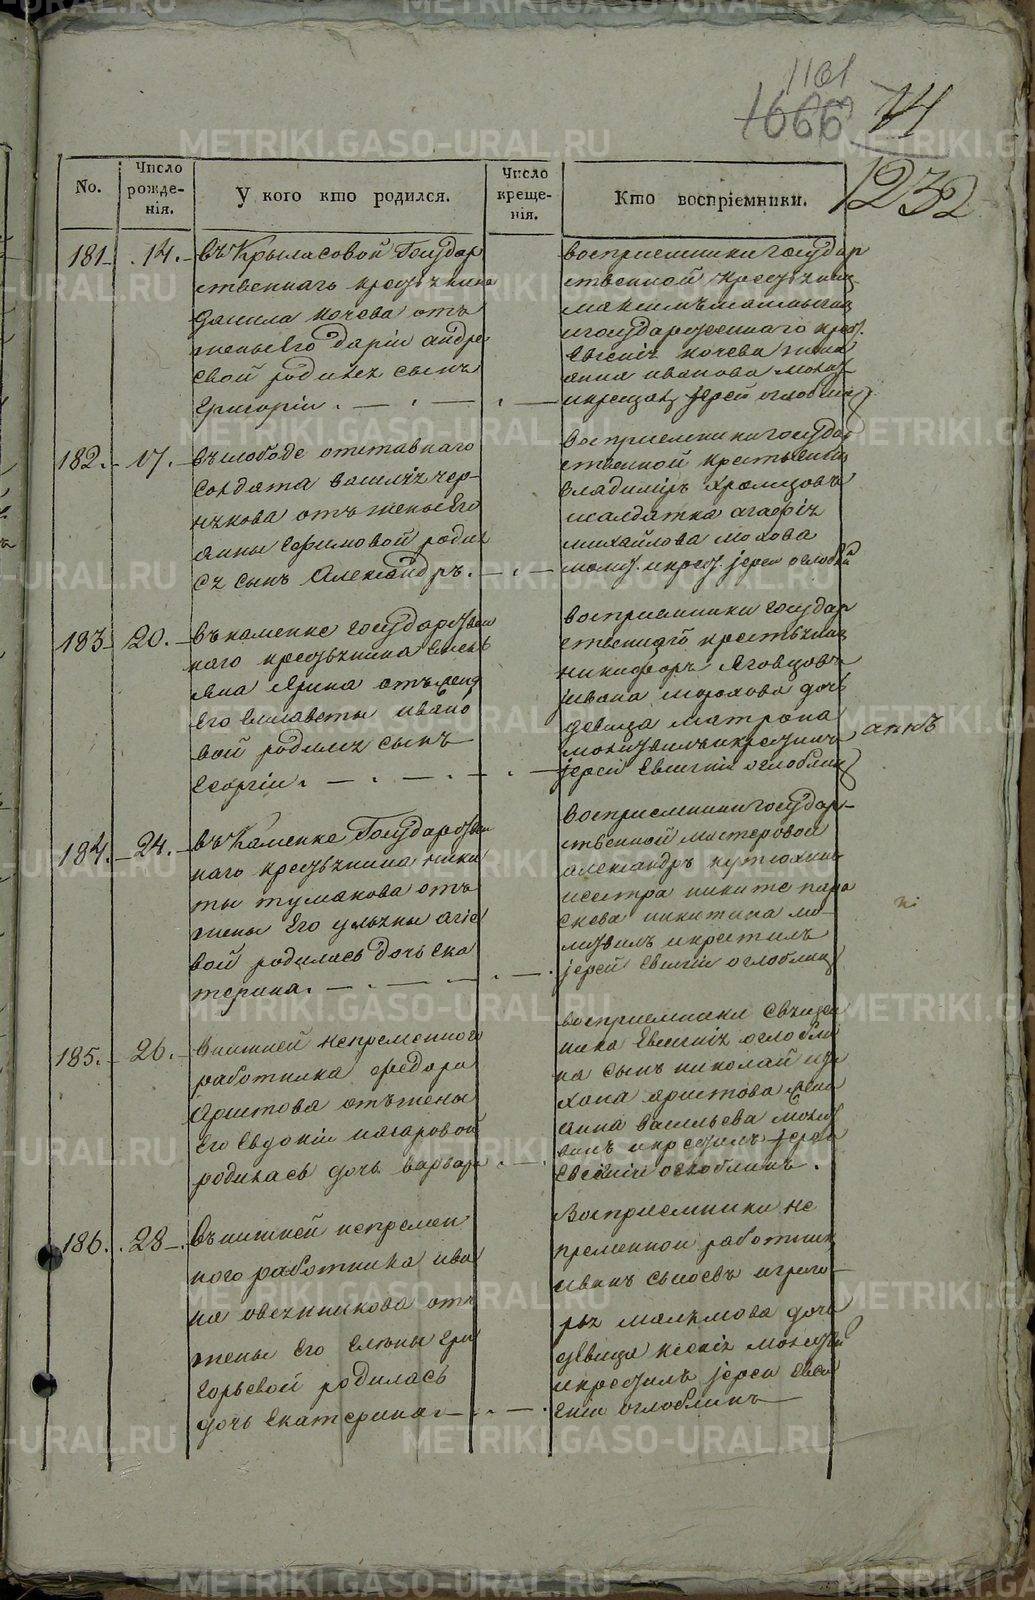 1101
1666 14
1232
No.
Число рожде-нія.
У кого кто родился.
Число креще-нія.
Кто воспріемники.
181. 14.
въ Крыласовой Государ
ственнаго крестьянина
Данила Кочева отъ
жены Его Даріи андре
евой родился сынъ
Григоріи.
восприемники государ
ственной крестьянинъ
максимъ
и государственнаго крес.
Евгенія кочева жена
анна иванова молит.
и крещах іерей оглоблинъ
182. 17.
въ слободе отставнаго
солдата василья чер-
някова отъ жены Его
анны Ефимовой родил
ся сынъ Александръ.
восприемники государ
ственной крестьянинъ
владимиръ
и салдатка агафія
михайлова
молит. и крест. іереи оглоблин
183. 20.
въ каменке государствен
наго крестьянина Емель
яна Ярина отъ жены
Его Елисаветы ивано
вой родился сынъ
Георгіи.
восприемники государ
ственнаго крестьянинъ
никифоръ Яговцовъ
ивана морохова дочь
девица матрона
молитвилъ и крестилъ
іерей Евгений оглоблинъ
аннъ
184. 24.
въ Каменке Государствен
наго крестьянина ники
ты тумакова отъ
жены Его ульяны агіе
вой родилась дочь Ека
терина.
восприемники государ-
ственной мастеровой
александръ кутюхинъ
и сестра никите пара
скева никитина мо-
литвилъ и крестилъ
іерей Евгении оглоблинъ
185. 26.
в нижней непременного
работника федора
аристова отъ жены
Его Евдокіи макаровой
родилась дочь варвара
восприемники священ
ника Евгенія оглобли
на сынъ николай и
аристова жена
анна васильева молит
вилъ и крестилъ іереи
Евгении оглоблинъ.
186. 28.
Въ нижней непремен
ного работника ива
на овечникова отъ
жены Его Елены гри
горьевой родилась
дочь Екатерина.
Восприемники не
пременнои работникъ
иванъ сысоевъ и григо-
рья малымова дочь
девица ксенія молитвил
и крестилъ іереи Евге
ении оглоблинъ
METRIKI.GASO-URAL.RU